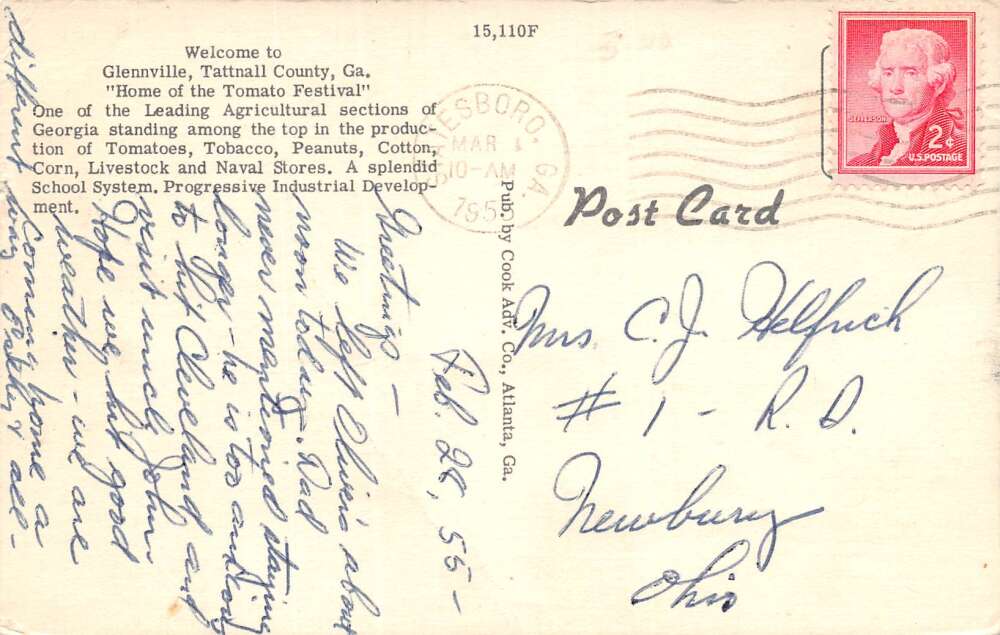 15,110F
Welcome to
Glennville, Tattnall County, Ga.
"Home of the Tomato Festival"
One of the Leading Agricultural sections of
Georgia standing among the top in the produc-
tion of Tomatoes, Tobacco, Peanuts, Cotton,
Corn, Livestock and Naval Stores. A splendid
School System. Progressive Industrial Develop-
ment.
ESBORO, GA.
MAR 1
10-AM
195
JEFFERSON
2¢
U.S. POSTAGE
Post Card
Pub. by Cook Adv. Co., Atlanta, Ga.
Feb. 28, 55-
Greetings -
We left Olivia about
noon today. Dad
never mentioned staying
longer - he is too anxious
to hit Cleveland and
visit uncle John
Hope we hit good
weather - we are
coming home a
different way
all -
Mrs. C. J. Helfrich
# 1 - R. D.
Newbury
Ohio